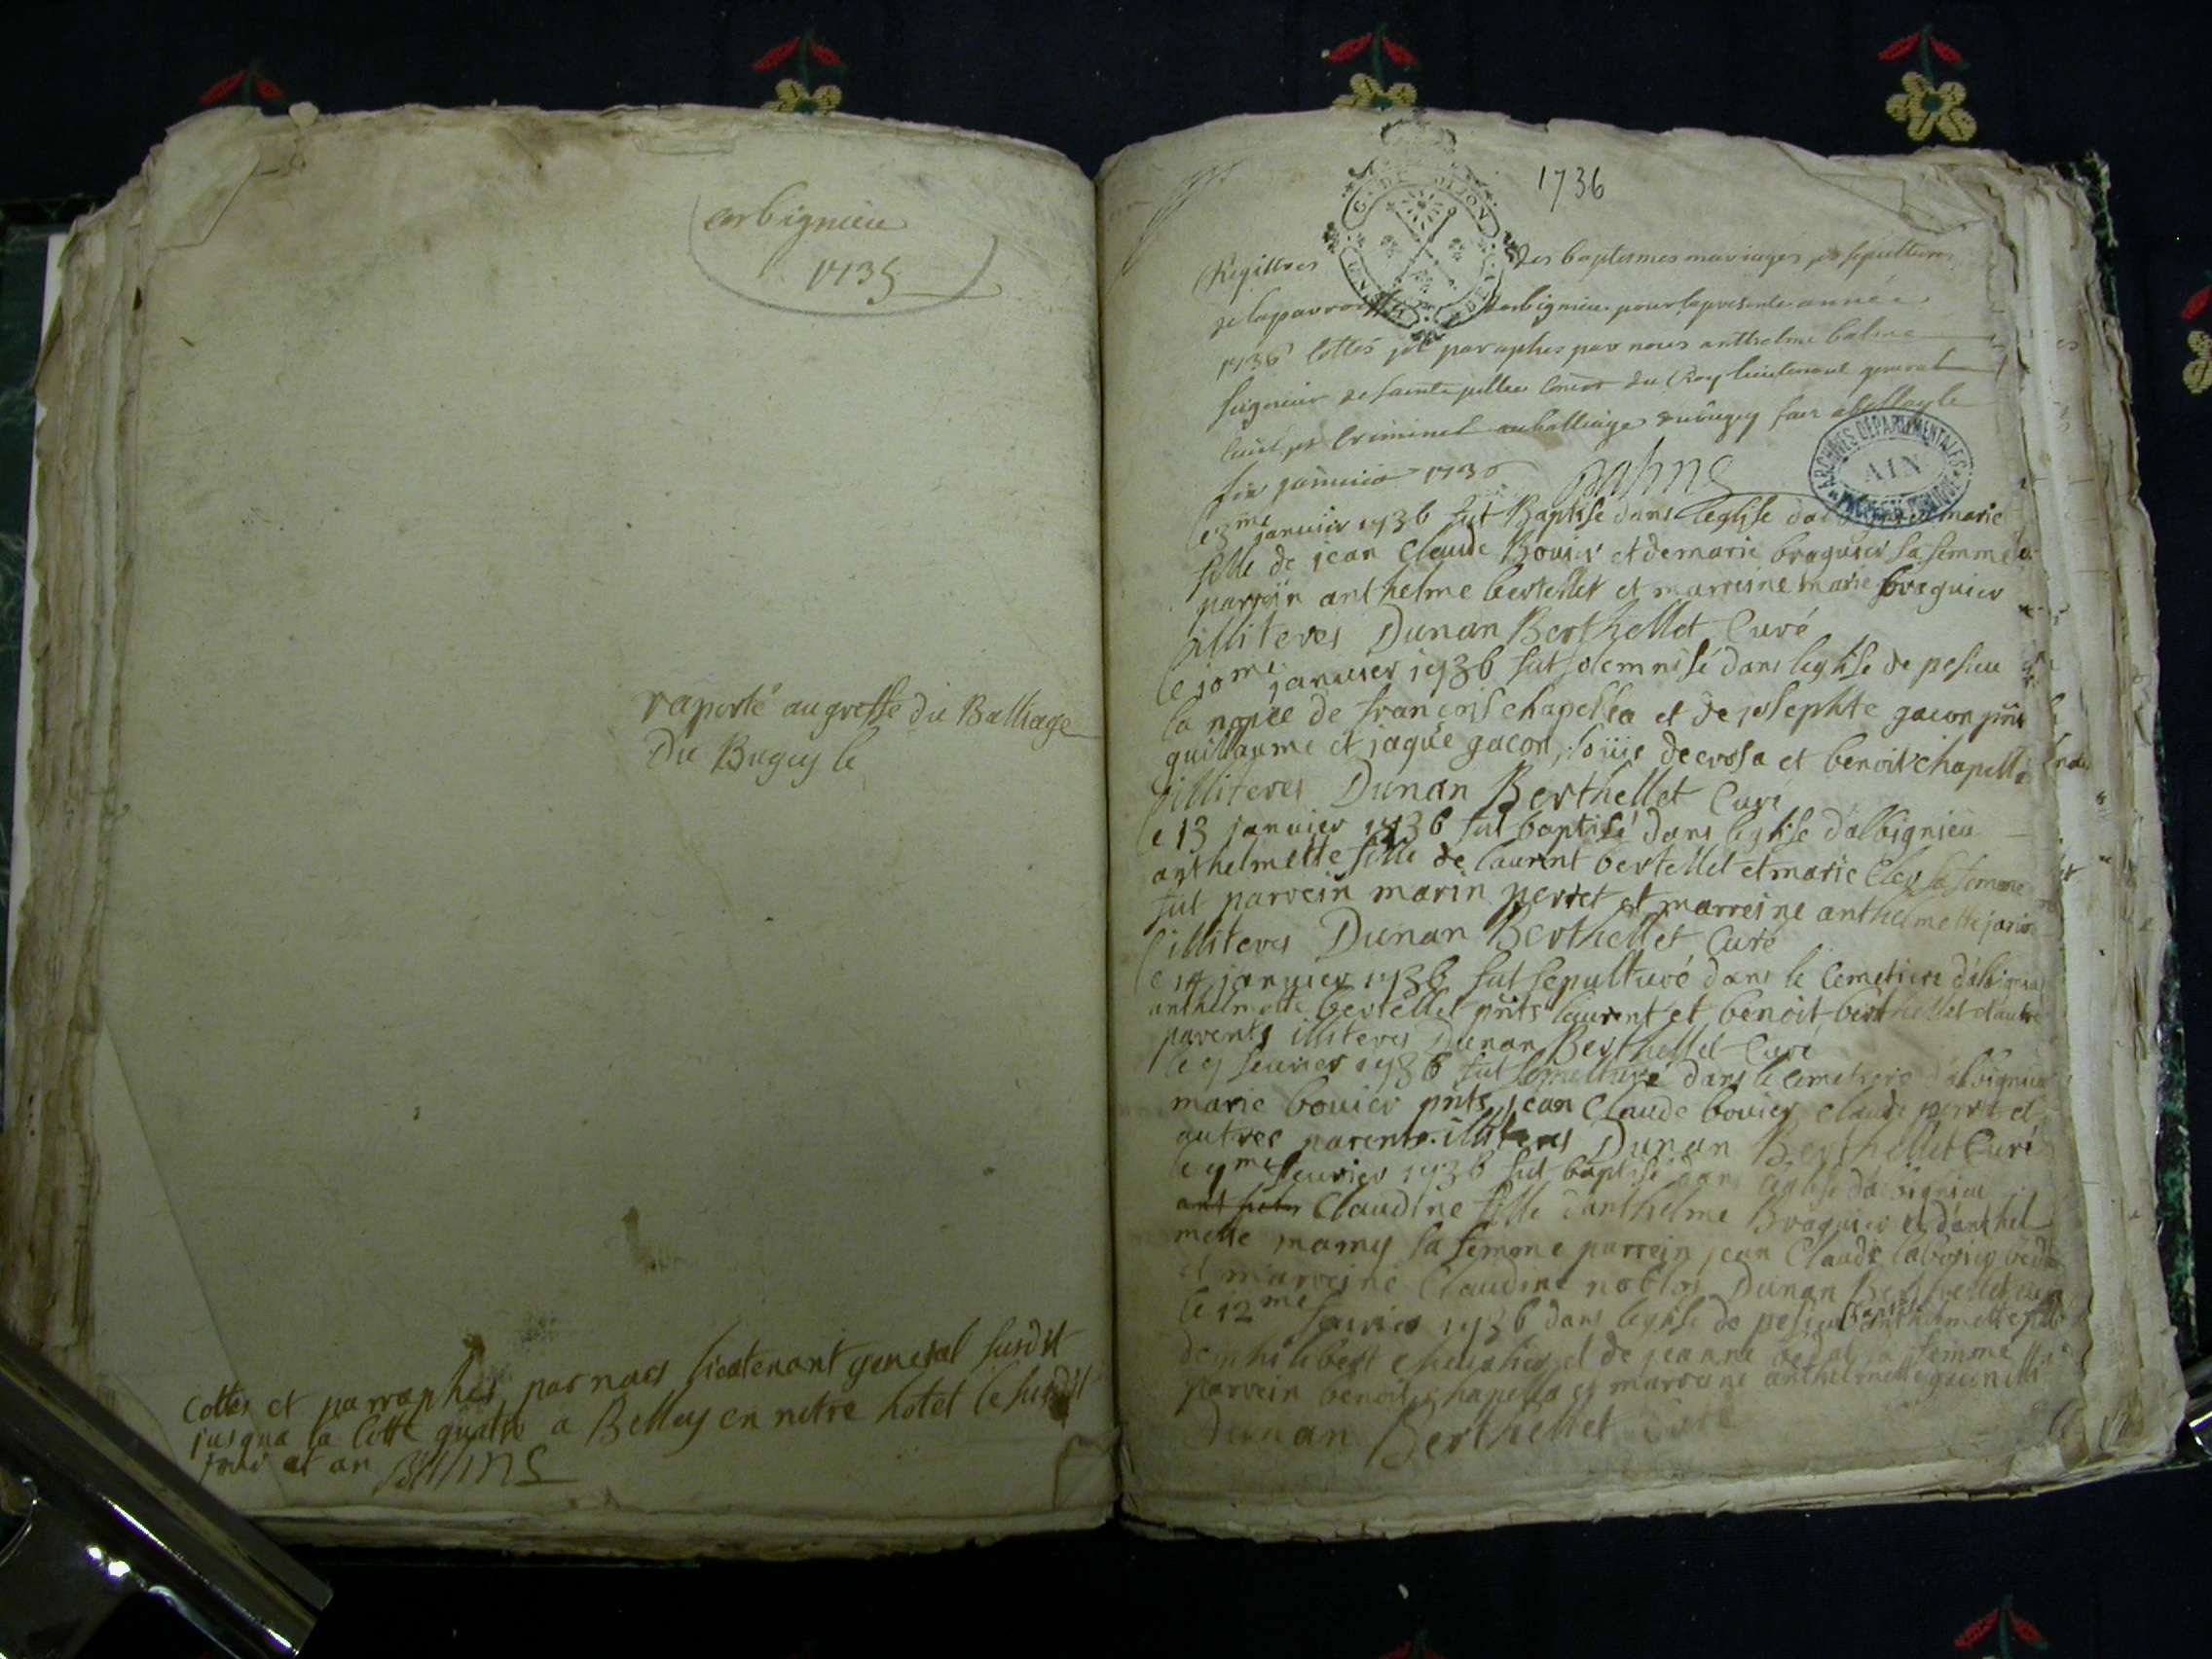 arbignieu
1735
raporté au greffe du Balliage
Du Bugey le
Cottés et parraphés par nous lieutenant general susdit
jusqua la cotte quatre a Belley en notre hotel le susdit
jour et an Balme
1736
G. DE DIJON
Registres des baptesmes mariages et sepultures
de la parroisse darbignieu pour la presente année
1736 cottés et paraphés par nous anthelme balme
seigneur de sainte jullie Coner du Roy lieutenant general
civil et criminel au balliage du bugey fait a belley le
janvier 1736 Balme
ARCHIVES DEPARTEMENTALES
AIN
le 3me janvier 1736 fut Baptise dans leglise marie
fille de jean Claude Bouier et de marie braguier sa femme
parrein anthelme bertellet et marreine marie braguier
illiteres Dunan Berthellet Curé
le 10me janvier 1736 fut solemnisé dans leglise de pesieu
la nopce de francois chapella et de josephte gacon pnts
guillaume et jaque gacon, decrosa et benoit chapella
illiteres Dunan Berthellet Curé
le 13 janvier 1736 fut baptisé dans leglise dalbignieu
anthelmette fille de laurent bertellet et marie sa femme
fut parrein marin perret et marreine anthelmette
illiteres Dunan Berthellet Curé
le 14 janvier 1736 fut sepulturé dans le cemetiere dalbignieu
anthelmette bertellet pnts laurent et benoit berthellet et autre
parents illiteres Dunan Berthellet Curé
le 9 feurier 1736 fut sepulturé dans le cemetiere dalbignieu
marie bouier pnts jean Claude bouier claude perret et
autres parents illiteres Dunan Berthellet Curé
le 9me feurier 1736 fut baptisé dans leglise dalbignieu
Claudine fille danthelme Braguier et danthel
mette mamy sa femme parrein jean Claude
et marreine Claudine Dunan Berthellet curé
le 12me feurier 1736 dans leglise de pesieu anthelmette fille
de philibert cheualier et de jeanne sa femme
parrein benoit chapella et marreine anthelmette
Dunan Berthellet Curé